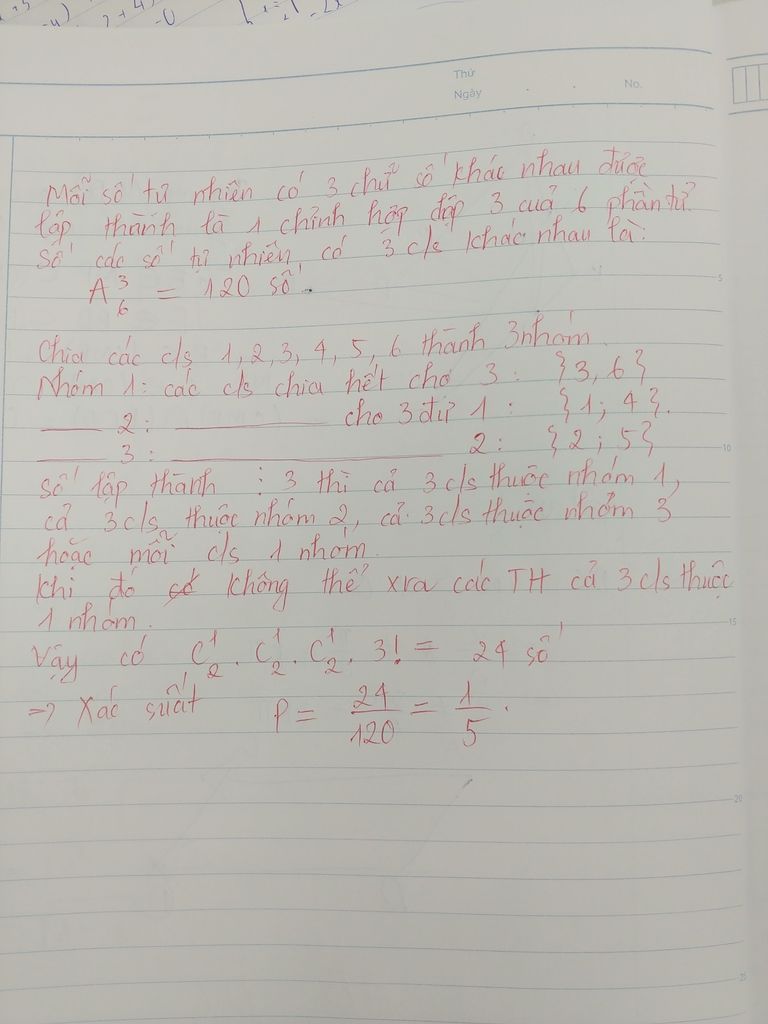 Thứ
Ngày
No.
Mỗi số tự nhiên có 3 chữ số khác nhau được
lập thành là 1 chỉnh hợp chập 3 của 6 phần tử
Số các số tự nhiên có 3 c/s khác nhau là:
A³₆ = 120 số.
5
Chia các c/s 1, 2, 3, 4, 5, 6 thành 3 nhóm
Nhóm 1: các c/s chia hết cho 3 : {3, 6}
____ 2 : ____________ cho 3 dư 1 : {1; 4}.
____ 3 : ____________ 2 : {2; 5}
10
Số lập thành ⋮ 3 thì cả 3 c/s thuộc nhóm 1,
cả 3 c/s thuộc nhóm 2, cả 3 c/s thuộc nhóm 3
hoặc mỗi c/s 1 nhóm
Khi đó không thể xra các TH cả 3 c/s thuộc
1 nhóm.
15
Vậy có C¹₂ . C¹₂ . C¹₂ . 3! = 24 số
=> Xác suất P = 24/120 = 1/5 .
20
25